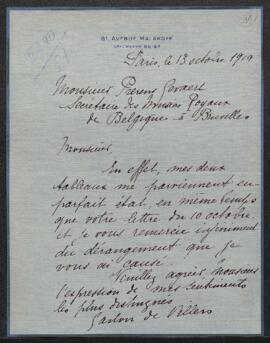 61, AVENUE MALAKOFF
Paris, le 13 octobre 1909
Monsieur Pierre
Secrétaire des Musées Royaux
de Belgique - à Bruxelles
Monsieur
En effet, mes deux
tableaux me parviennent en
parfait état, en même temps
que votre lettre du 10 octobre.
et je vous remercie infiniment
du dérangement que je
vous ai causé.
Veuillez agréer Monsieur
l'expression de mes sentiments
les plus distingués
Gaston de Villers